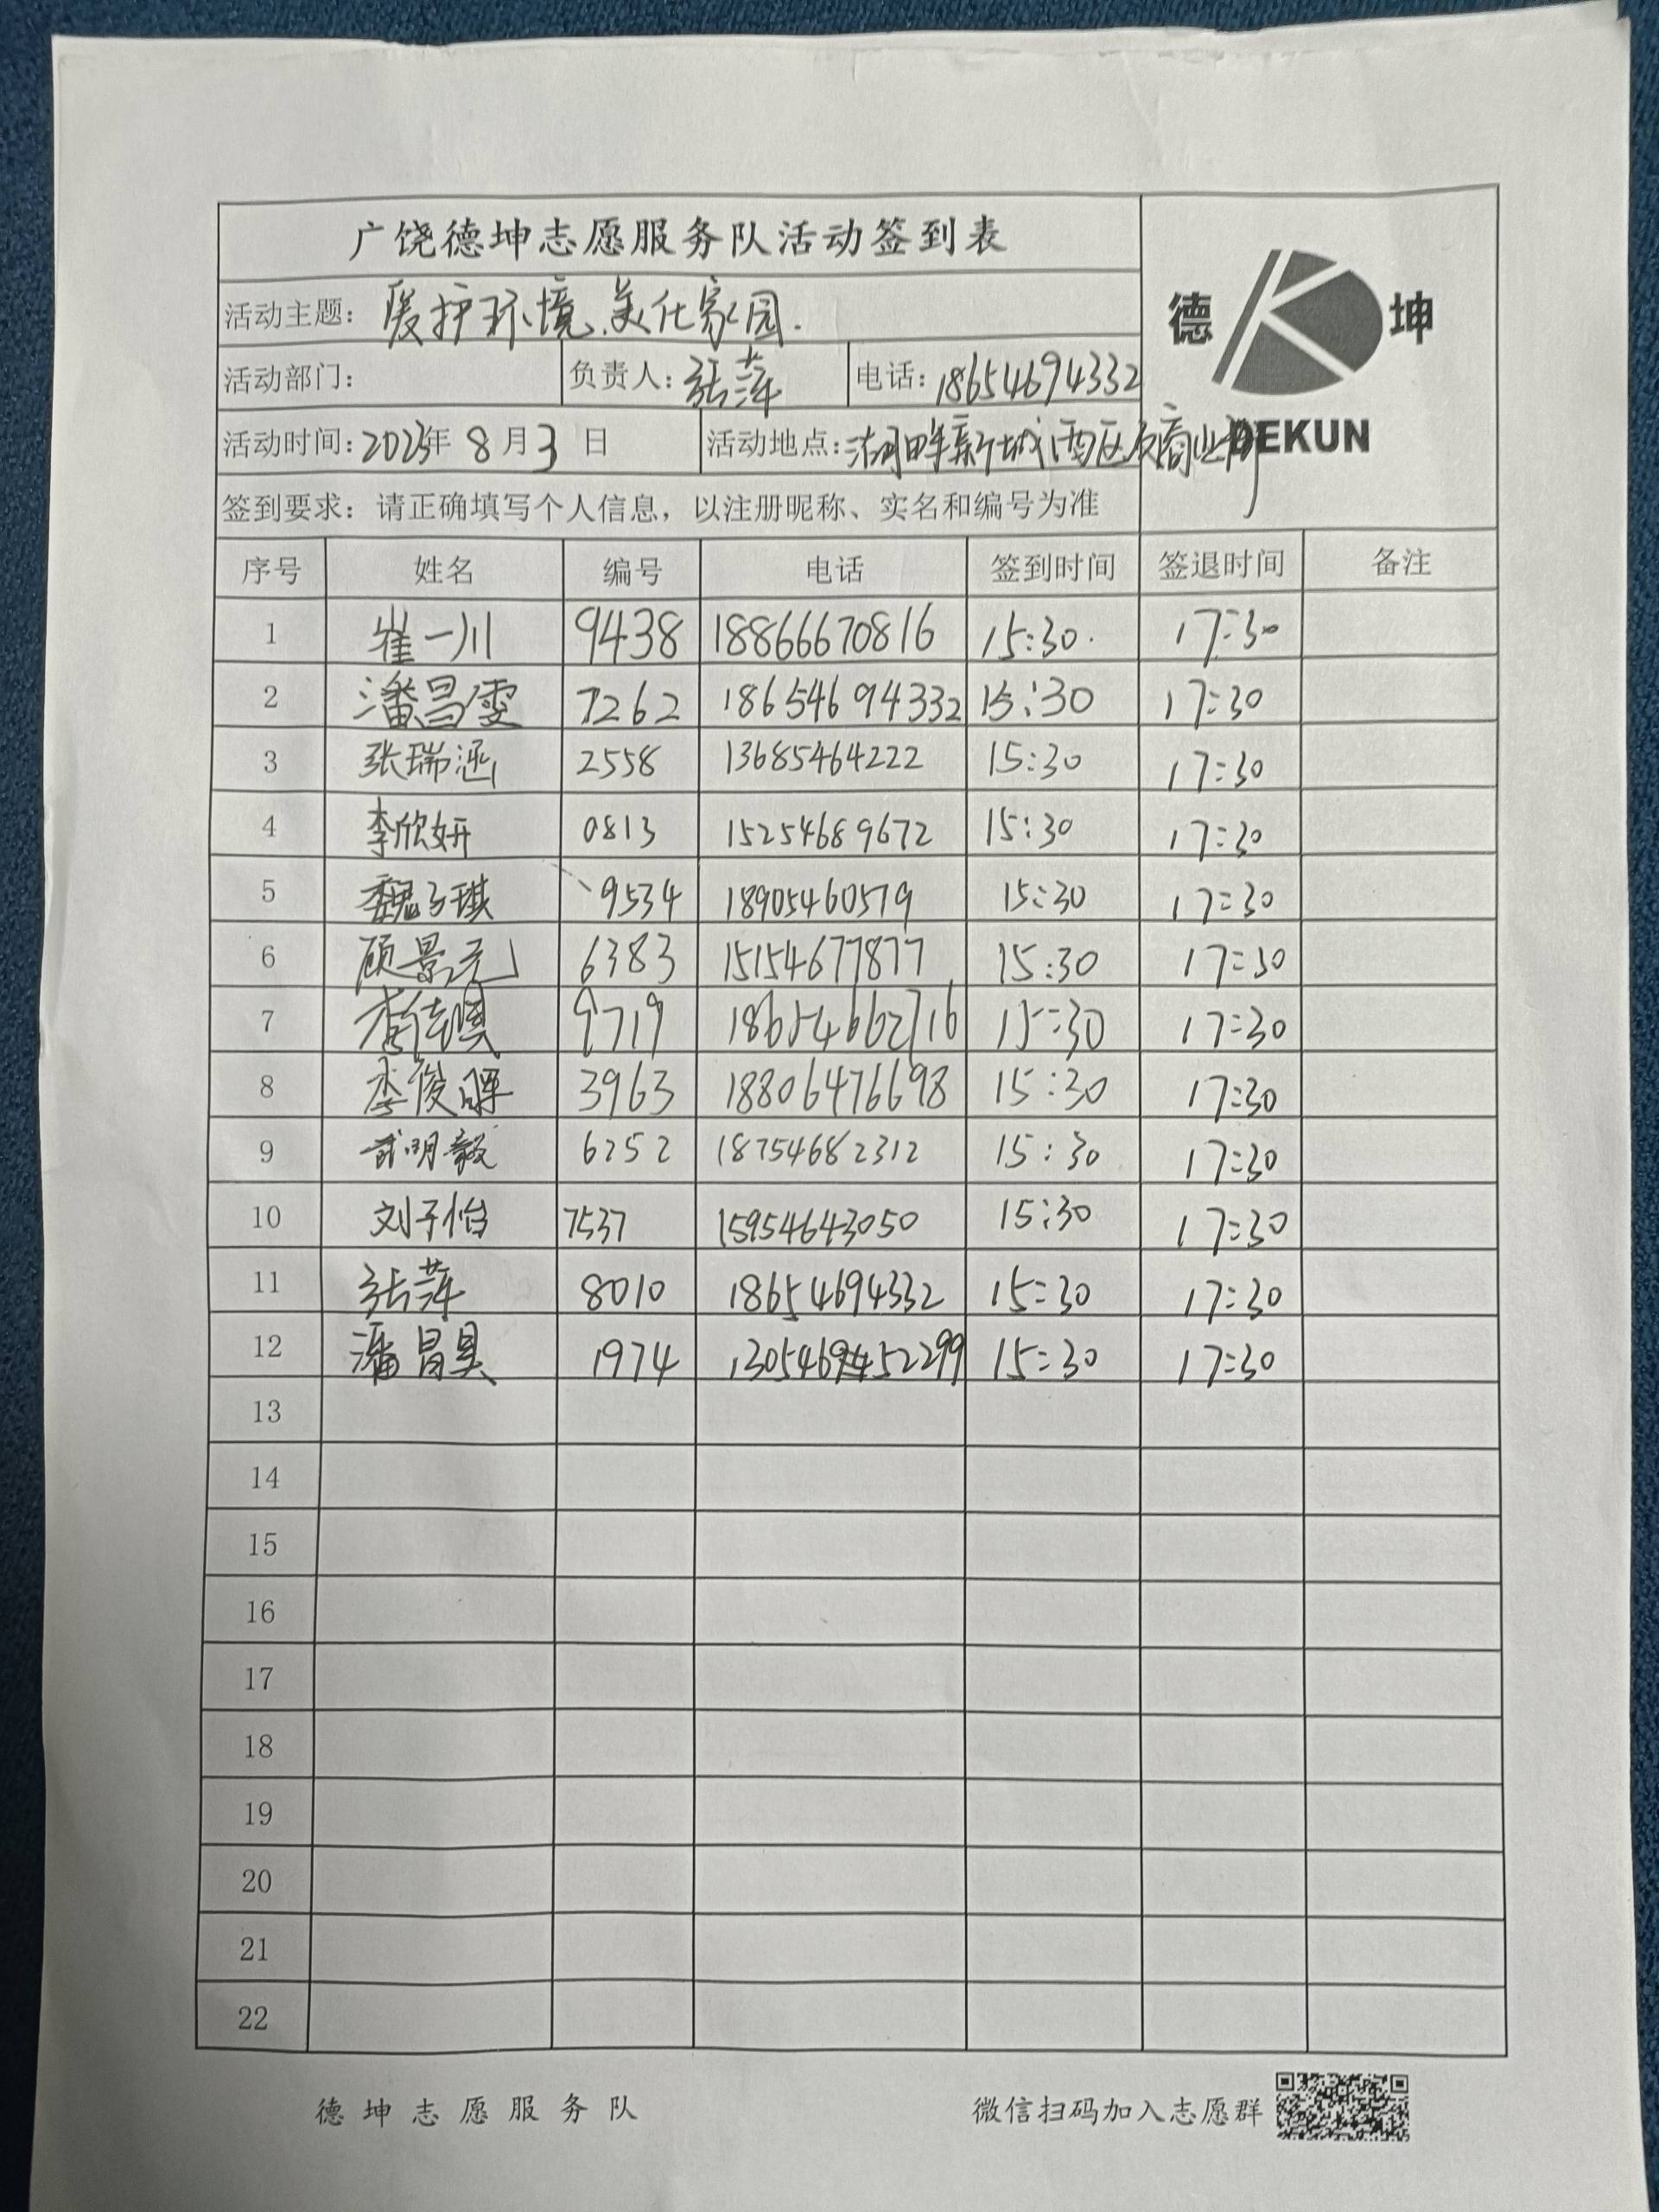 广饶德坤志愿服务队活动签到表
德 坤
DEKUN
活动主题：爱护环境、美化家园.
活动部门： 负责人：张萍 电话：18654694332
活动时间：2023年 8月3日 活动地点：湖畔新城西区及商业街
签到要求：请正确填写个人信息，以注册昵称、实名和编号为准
序号 姓名 编号 电话 签到时间 签退时间 备注
1 崔一川 9438 18866670816 15:30 17:30
2 潘昌雯 7262 18654694332 15:30 17:30
3 张瑞涵 2558 13685464222 15:30 17:30
4 李欣妍 0813 15254689672 15:30 17:30
5 魏子琪 9534 18905460579 15:30 17:30
6 顾景元 6383 15154677877 15:30 17:30
7 9719 18654662716 15:30 17:30
8 李俊晖 3963 18806476698 15:30 17:30
9 武明毅 6252 18754682312 15:30 17:30
10 刘子怡 7537 15954643050 15:30 17:30
11 张萍 8010 18654694332 15:30 17:30
12 潘昌昊 1974 15:30 17:30
13
14
15
16
17
18
19
20
21
22
德坤志愿服务队 微信扫码加入志愿群